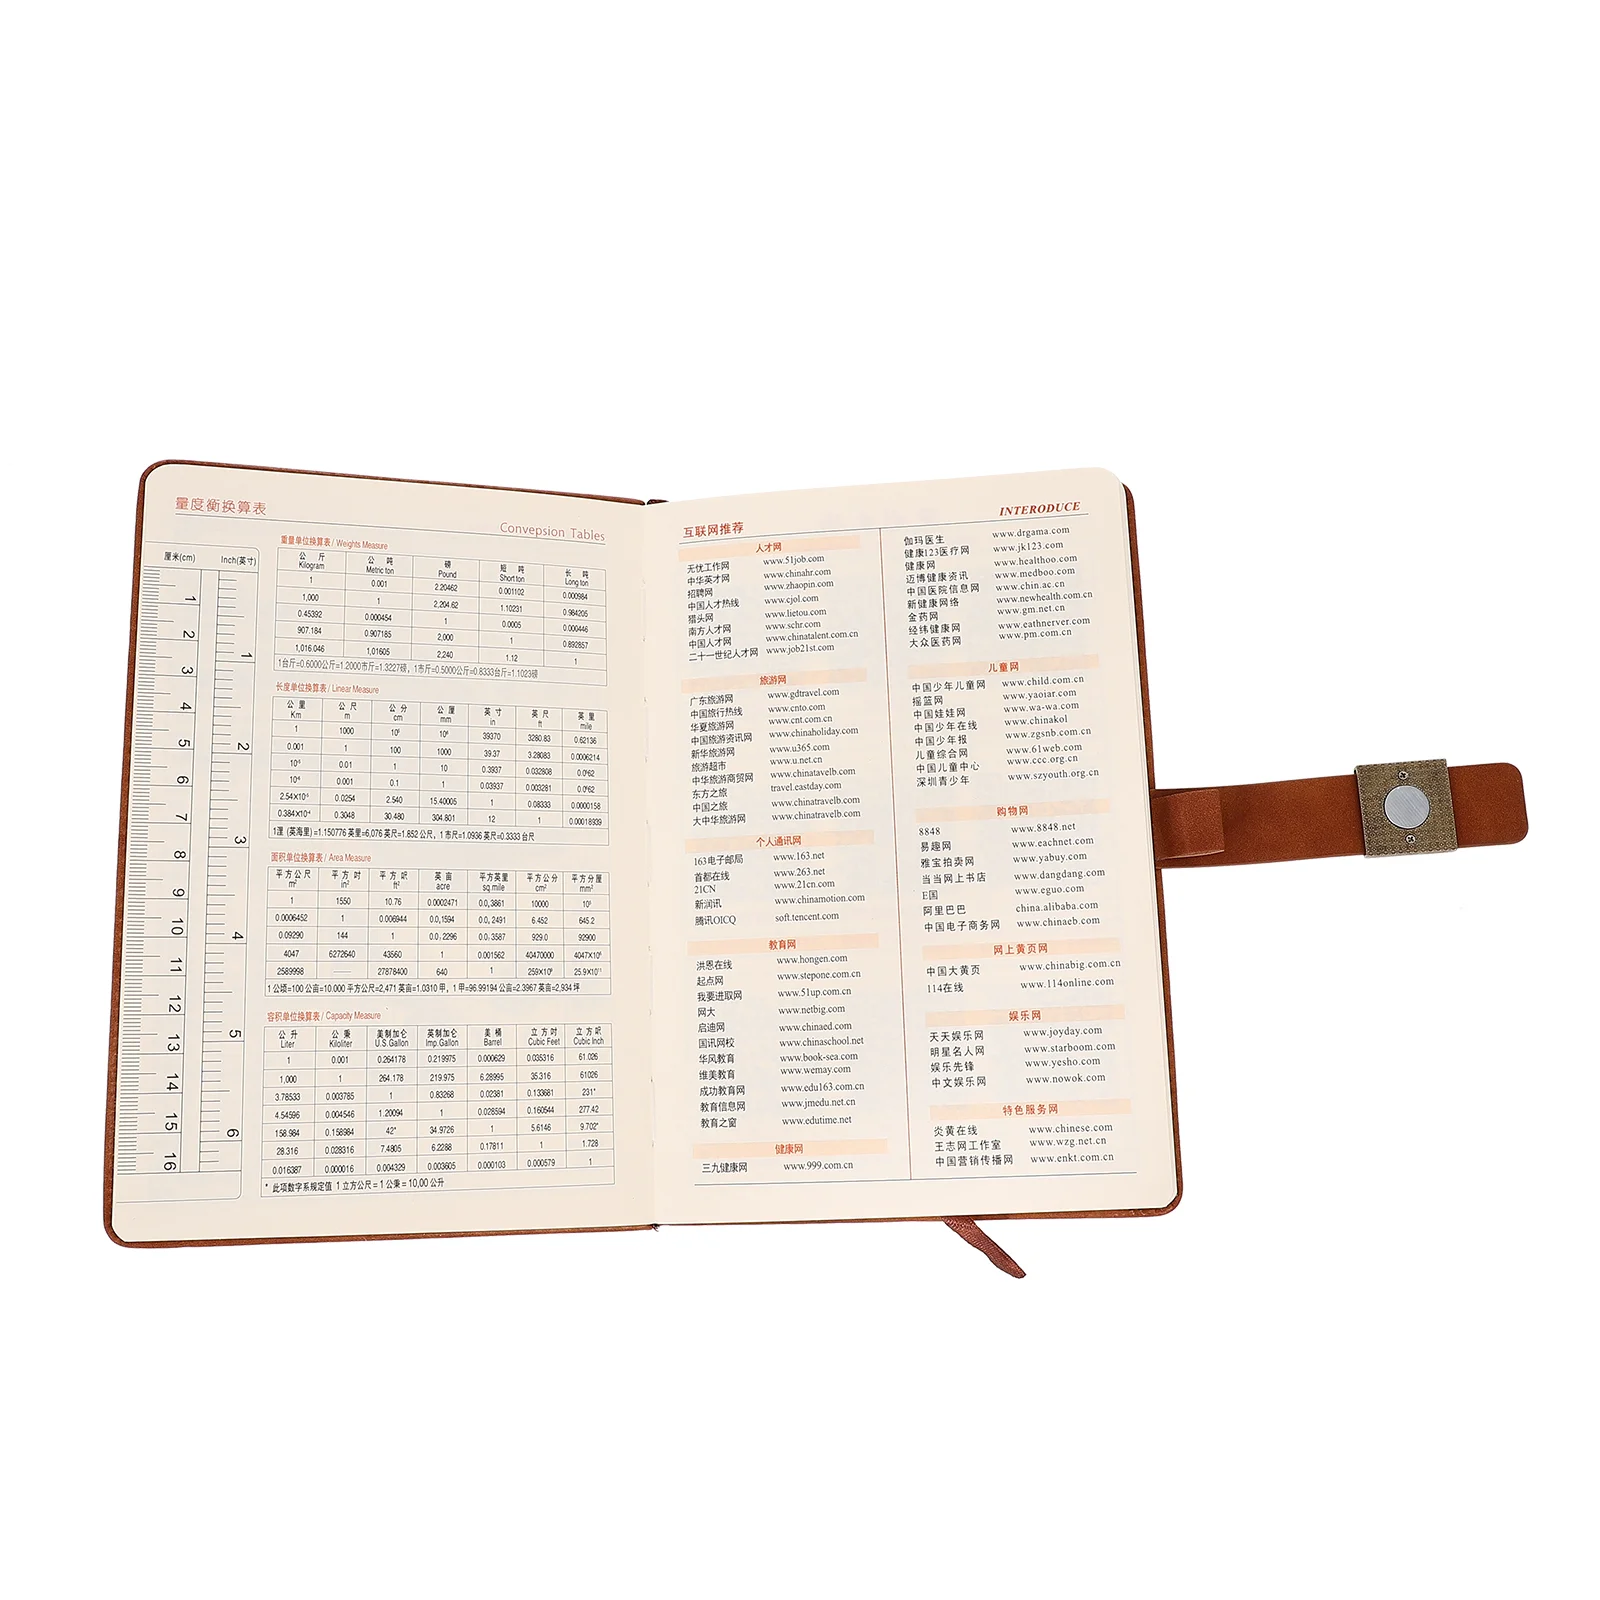 量度衡换算表
Convepsion Tables
厘米(cm) Inch(英寸)
1
2
3
4
5
6
7
8
9
10
11
12
13
14
15
16
1
2
3
4
5
6
重量单位换算表 / Weights Measure
公斤 公吨 磅 短吨 长吨
Kilogram Metric ton Pound Short ton Long ton
1 0.001 2.20462 0.001102 0.000984
1,000 1 2,204.62 1.10231 0.984205
0.45392 0.000454 1 0.0005 0.000446
907.184 0.907185 2,000 1 0.892857
1,016.046 1,01605 2,240 1.12 1
1台斤=0.6000公斤=1.2000市斤=1.3227磅，1市斤=0.5000公斤=0.8333台斤=1.1023磅
长度单位换算表 / Linear Measure
公里 公尺 公分 公厘 英寸 英尺 英里
Km m cm mm in ft mile
1 1000 10⁵ 10⁶ 39370 3280.83 0.62136
0.001 1 100 1000 39.37 3.28083 0.0006214
10⁻⁵ 0.01 1 10 0.3937 0.032808 0.0⁵62
10⁻⁶ 0.001 0.1 1 0.03937 0.003281 0.0⁶62
2.54×10⁻⁵ 0.0254 2.540 15.40005 1 0.08333 0.0000158
0.384×10⁻⁴ 0.3048 30.480 304.801 12 1 0.00018939
1浬 (英海里) =1.150776 英里=6,076 英尺=1.852 公尺，1 市尺=1.0936 英尺=0.3333 台尺
面积单位换算表 / Area Measure
平方公尺 平方吋 平方呎 英亩 平方英里 平方公分 平方公厘
m² in² ft² acre sq.mile cm² mm²
1 1550 10.76 0.0002471 0.0,3861 10000 10⁵
0.0006452 1 0.006944 0.0,1594 0.0, 2491 6.452 645.2
0.09290 144 1 0.0, 2296 0.0, 3587 929.0 92900
4047 6272640 43560 1 0.001562 40470000 4047×10⁶
2589998 —— 27878400 640 1 259×10⁸ 25.9×10¹¹
1 公顷=100 公亩=10.000 平方公尺=2,471 英亩=1.0310 甲，1 甲=96.99194 公亩=2.3967 英亩=2,934 坪
容积单位换算表 / Capacity Measure
公升 公秉 美制加仑 英制加仑 美桶 立方呎 立方吋
Liter Kiloliter U.S.Gallon Imp.Gallon Barrel Cubic Feet Cubic Inch
1 0.001 0.264178 0.219975 0.000629 0.035316 61.026
1,000 1 264.178 219.975 6.28995 35.316 61026
3.78533 0.003785 1 0.83268 0.02381 0.133681 231*
4.54596 0.004546 1.20094 1 0.028594 0.160544 277.42
158.984 0.158984 42* 34.9726 1 5.6146 9.702*
28.316 0.028316 7.4805 6.2288 0.17811 1 1.728
0.016387 0.000016 0.004329 0.003605 0.000103 0.000579 1
* 此项数字系规定值 1 立方公尺 = 1 公秉 = 10,00 公升
互联网推荐
INTERODUCE
人才网
无忧工作网 www.51job.com
中华英才网 www.chinahr.com
招聘网 www.zhaopin.com
中国人才热线 www.cjol.com
猎头网 www.lietou.com
南方人才网 www.schr.com
中国人才网 www.chinatalent.com.cn
二十一世纪人才网 www.job21st.com
旅游网
广东旅游网 www.gdtravel.com
中国旅行热线 www.cnto.com
华夏旅游网 www.cnt.com.cn
中国旅游资讯网 www.chinaholiday.com
新华旅游网 www.u365.com
旅游超市 www.u.net.cn
中华旅游商贸网 www.chinatavelb.com
东方之旅 travel.eastday.com
中国之旅 www.chinatravelb.com
大中华旅游网 www.chinatravelb.com
个人通讯网
163电子邮局 www.163.net
首都在线 www.263.net
21CN www.21cn.com
新润讯 www.chinamotion.com
腾讯OICQ soft.tencent.com
教育网
洪恩在线 www.hongen.com
起点网 www.stepone.com.cn
我要进取网 www.51up.com.cn
网大 www.netbig.com
启迪网 www.chinaed.com
国讯网校 www.chinaschool.net
华风教育 www.book-sea.com
维美教育 www.wemay.com
成功教育网 www.edu163.com.cn
教育信息网 www.jmedu.net.cn
教育之窗 www.edutime.net
健康网
三九健康网 www.999.com.cn
伽玛医生 www.drgama.com
健康123医疗网 www.jk123.com
健康网 www.healthoo.com
迈博健康资讯 www.medboo.com
中国医院信息网 www.chin.ac.cn
新健康网络 www.newhealth.com.cn
金药网 www.gm.net.cn
经纬健康网 www.eathnerver.com
大众医药网 www.pm.com.cn
儿童网
中国少年儿童网 www.child.com.cn
摇篮网 www.yaoiar.com
中国娃娃网 www.wa-wa.com
中国少年在线 www.chinakol
中国少年报 www.zgsnb.com.cn
儿童综合网 www.61web.com
中国儿童中心 www.ccc.org.cn
深圳青少年 www.szyouth.org.cn
购物网
8848 www.8848.net
易趣网 www.eachnet.com
雅宝拍卖网 www.yabuy.com
当当网上书店 www.dangdang.com
E国 www.eguo.com
阿里巴巴 china.alibaba.com
中国电子商务网 www.chinaeb.com
网上黄页网
中国大黄页 www.chinabig.com.cn
114在线 www.114online.com
娱乐网
天天娱乐网 www.joyday.com
明星名人网 www.starboom.com
娱乐先锋 www.yesho.com
中文娱乐网 www.nowok.com
特色服务网
炎黄在线 www.chinese.com
王志网工作室 www.wzg.net.cn
中国营销传播网 www.enkt.com.cn